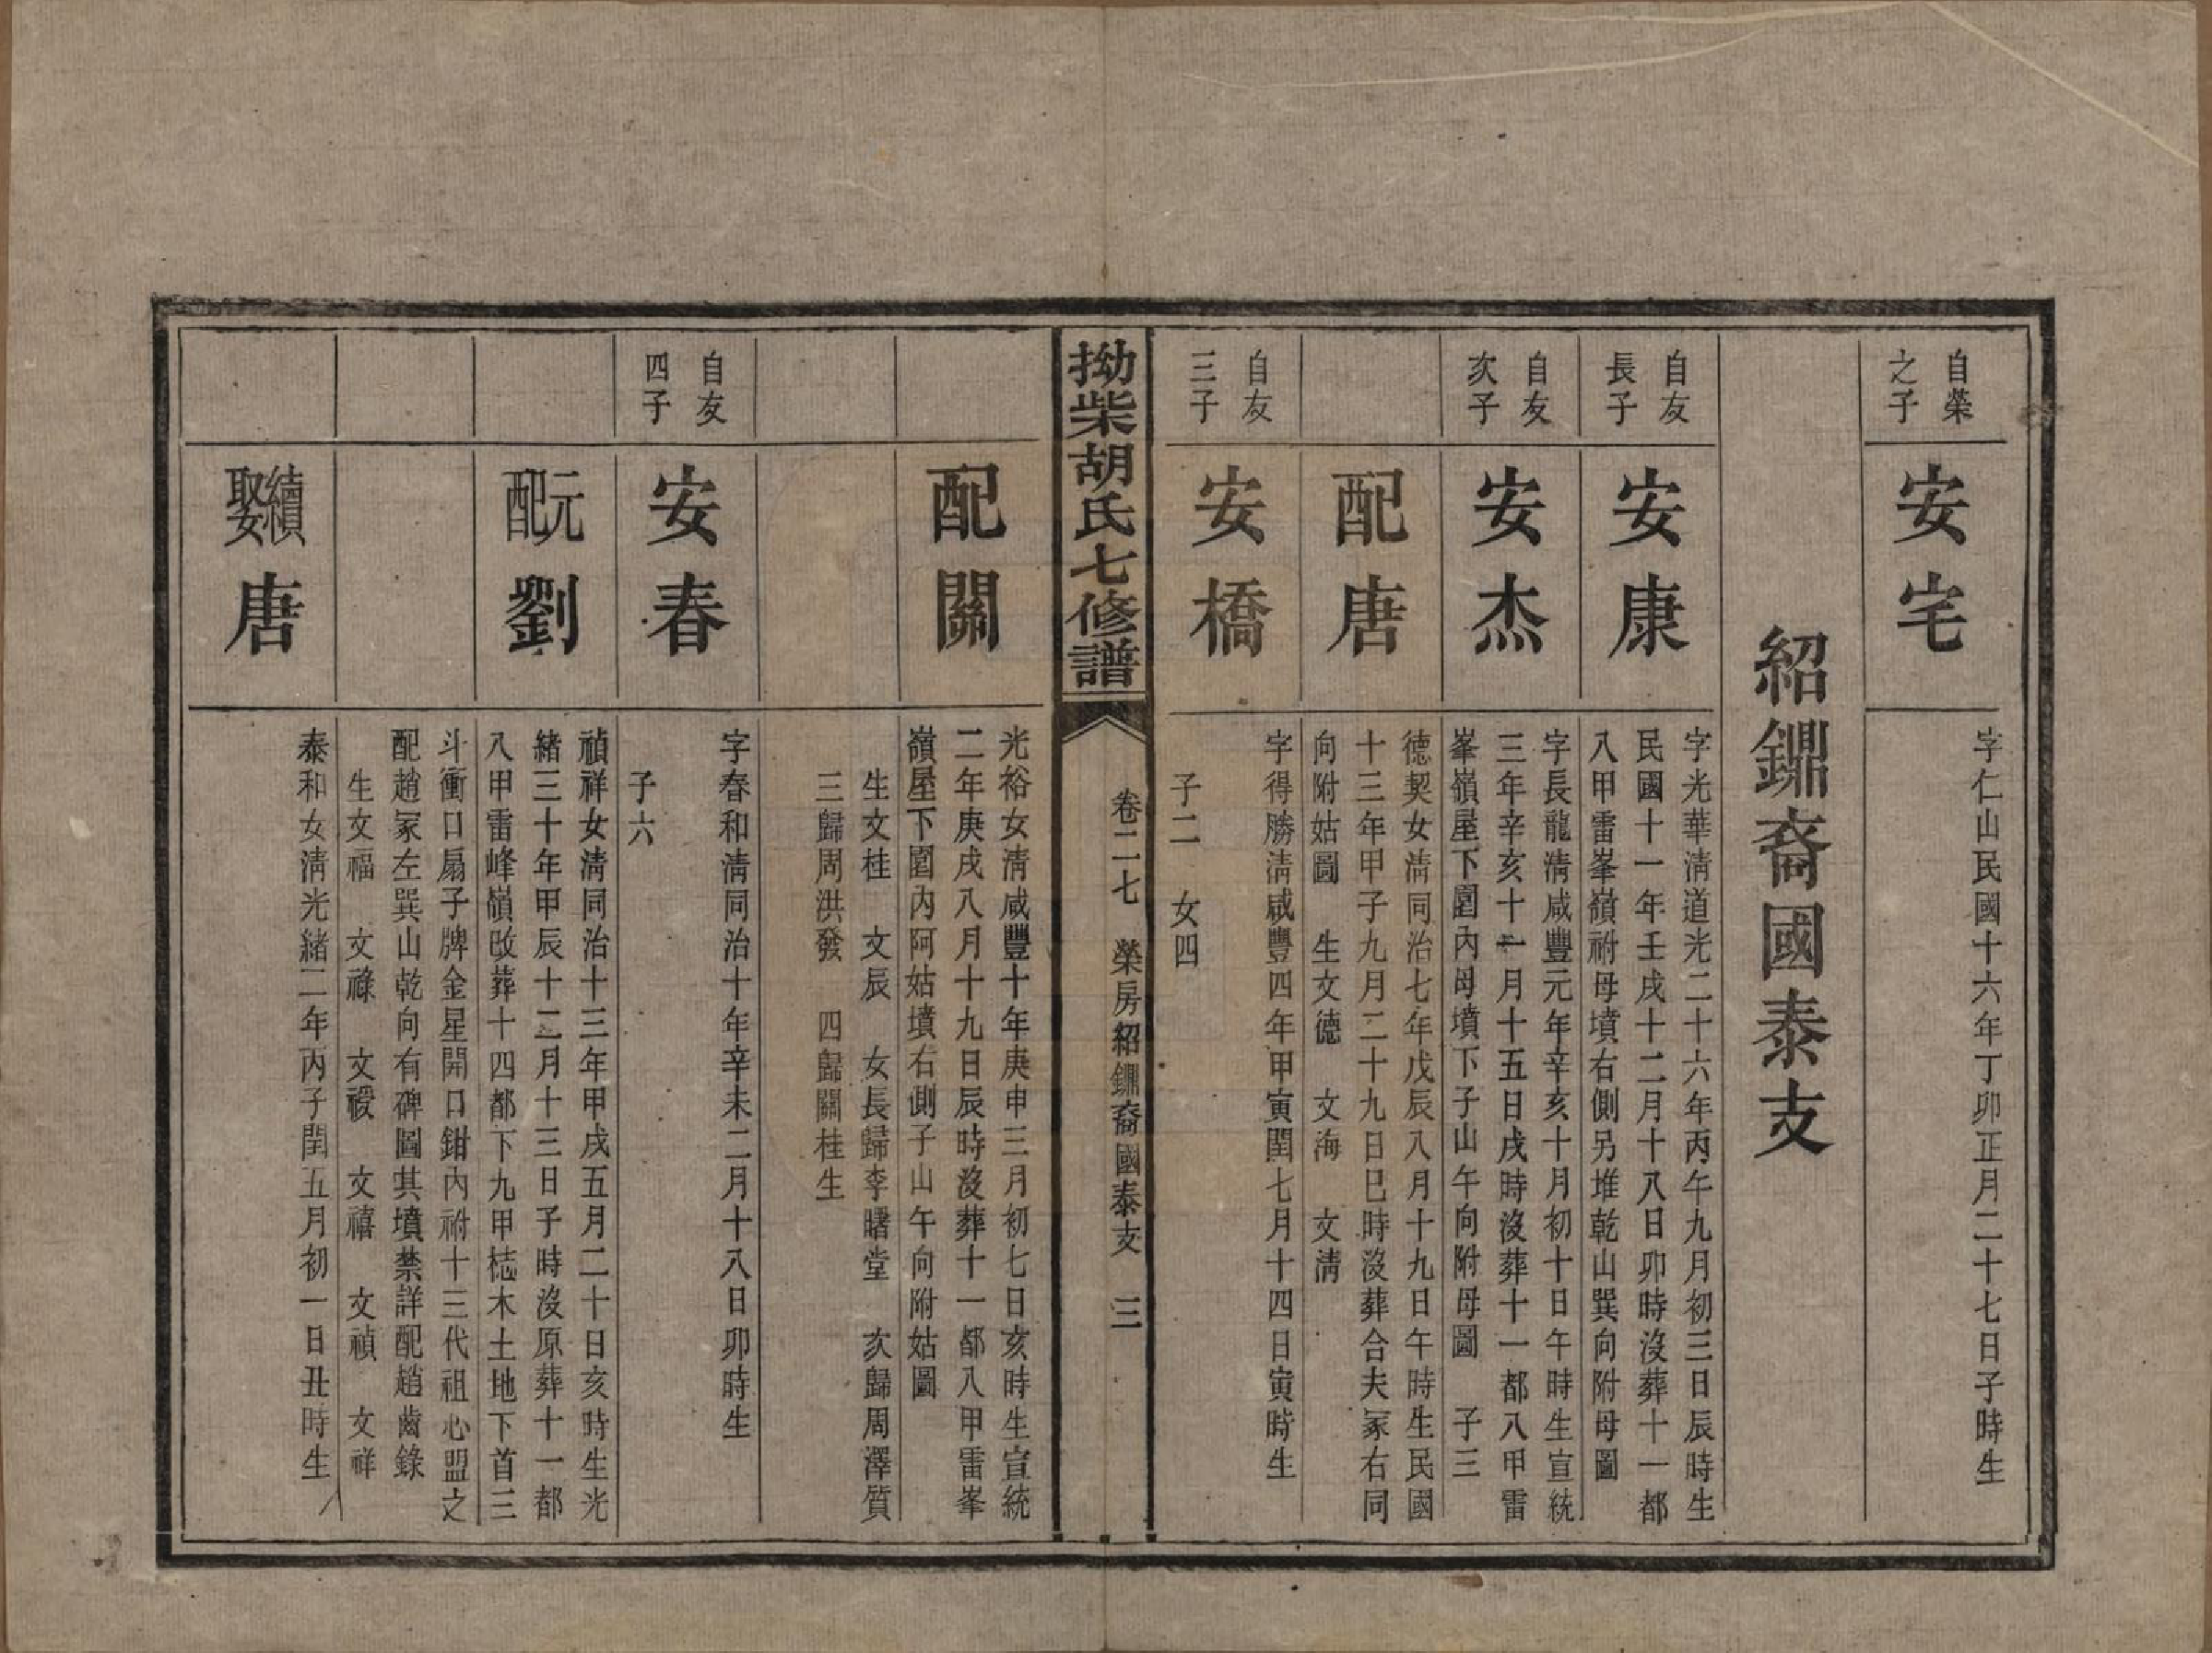 自榮
之子
安宅
字仁山民國十六年丁卯正月二十七日子時生
紹鐤裔國泰支
自友
長子
安康
字光華淸道光二十六年丙午九月初三日辰時生
民國十一年壬戌十二月十八日卯時沒葬十一都
八甲雷峯嶺祔母墳右側另堆乾山巽向附母圖
自友
次子
安杰
字長龍淸咸豐元年辛亥十月初十日午時生宣統
三年辛亥十一月十五日戌時沒葬十一都八甲雷
峯嶺屋下園內母墳下子山午向附母圖　子三
配唐
德契女淸同治七年戊辰八月十九日午時生民國
十三年甲子九月二十九日巳時沒葬合夫冢右同
向附姑圖　生文德　文海　文淸
自友
三子
安橋
字得勝淸咸豐四年甲寅閏七月十四日寅時生
子二　女四
拗柴胡氏七修譜
卷二七　榮房紹鐤裔國泰支　三
配關
光裕女淸咸豐十年庚申三月初七日亥時生宣統
二年庚戌八月十九日辰時沒葬十一都八甲雷峯
嶺屋下園內阿姑墳右側子山午向附姑圖
生文桂　文辰　女長歸李曙堂　次歸周澤質
三歸周洪發　四歸關桂生
自友
四子
安春
字春和淸同治十年辛未二月十八日卯時生
子六
元配劉
禎祥女淸同治十三年甲戌五月二十日亥時生光
緒三十年甲辰十二月十三日子時沒原葬十一都
八甲雷峰嶺改葬十四都下九甲梽木土地下首三
斗衝口扇子牌金星開口鉗內祔十三代祖心盟之
配趙冢左巽山乾向有碑圖其墳禁詳配趙齒錄
生文福　文祿　文禐　文禧　文禎　文祥
續娶唐
泰和女淸光緒二年丙子閏五月初一日丑時生